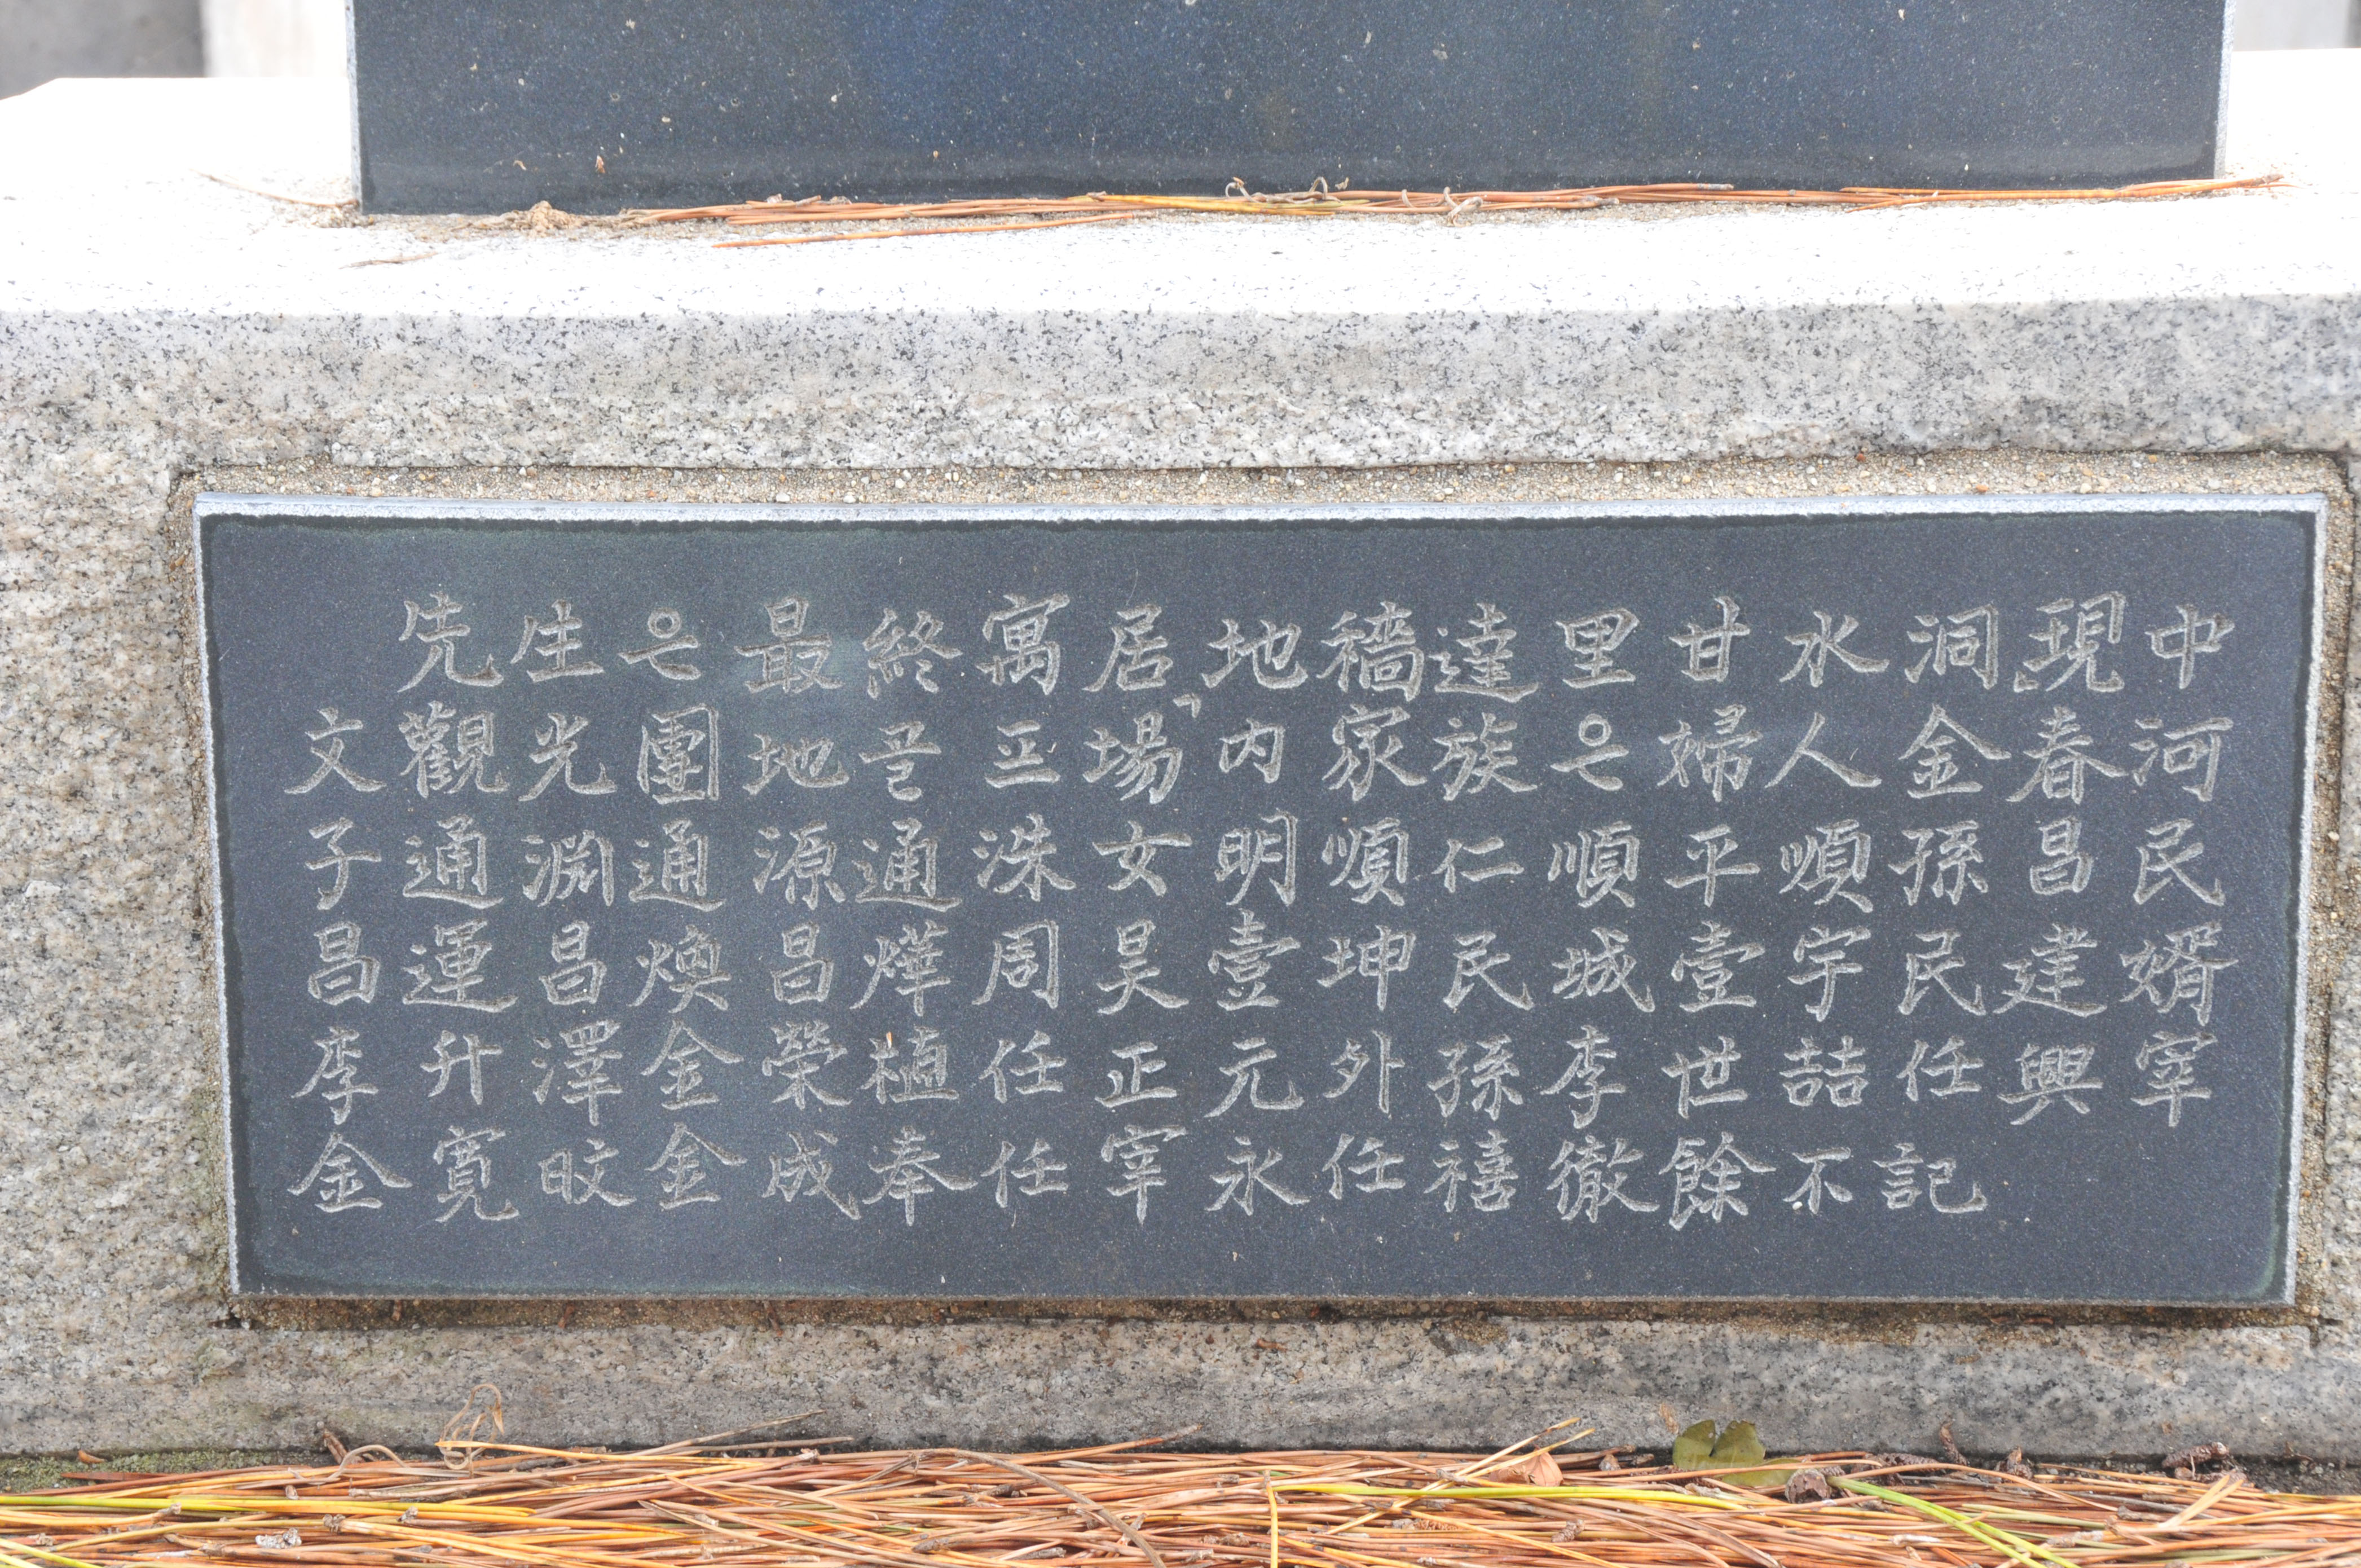 先生은最終寓居地穡達里甘水洞「現中
文觀光團地골프場」內家族은婦人金春河
子通淵通源通洙女明順仁順平順孫昌民
昌運昌煥昌燁周昊壹坤民城壹宇民建婿
李升澤金榮植任正元外孫李世喆任興宰
金寬旼金成奉任宰永任禧徹餘不記